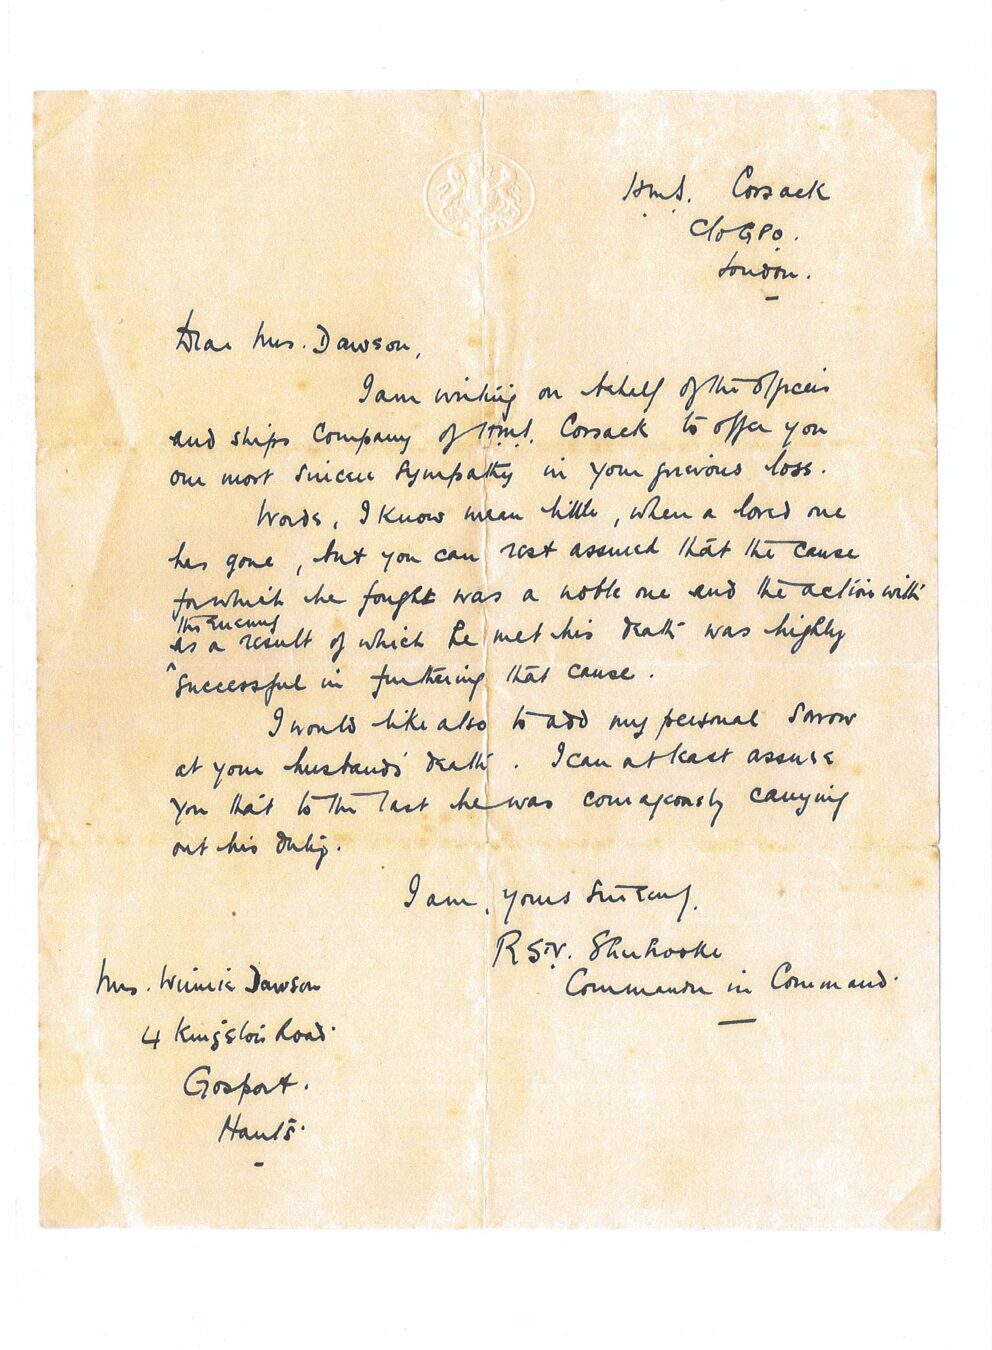 H.M.S. Cossack
C/o G.P.O.
London.
Dear Mrs. Dawson,
I am writing on behalf of the Officers
and ships company of H.M.S. Cossack to offer you
our most sincere sympathy in your grievous loss.
Words, I know mean little, when a loved one
has gone, but you can rest assured that the cause
for which he fought was a noble one and the action with
the enemy
as a result of which he met his death was highly
successful in furthering that cause.
I would like also to add my personal sorrow
at your husband's death. I can at least assure
you that to the last he was courageously carrying
out his duty.
I am, yours sincerely,
R St.V. Sherbrooke
Commander in Command.
Mrs. Winnie Dawson
4 Kingston Road.
Gosport.
Hants.